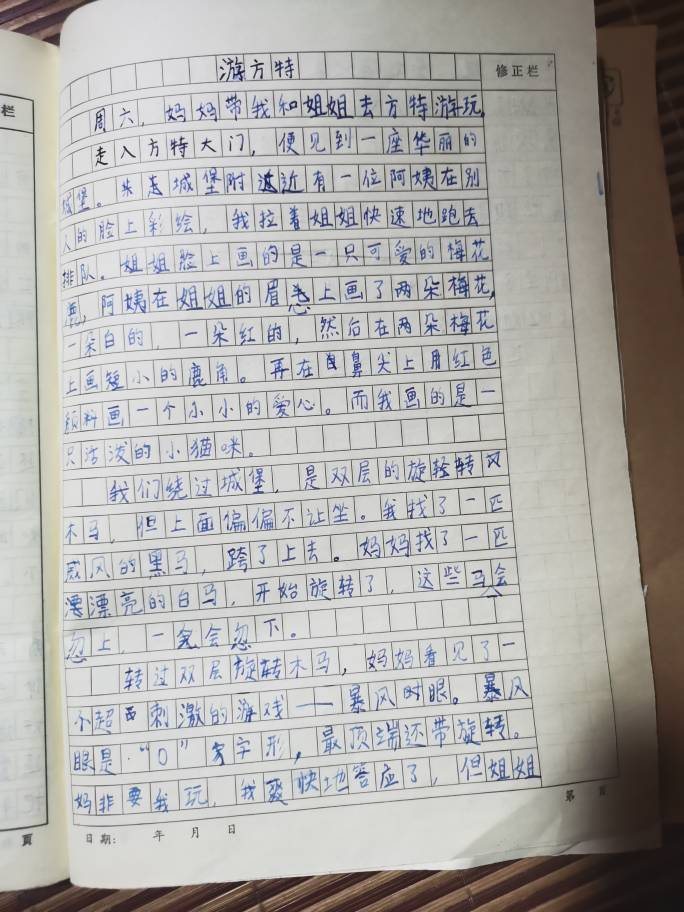 栏
修正栏
游方特
周六，妈妈带我和姐姐去方特游玩。
走入方特大门，便见到一座华丽的
城堡。城堡附近有一位阿姨在别
人的脸上彩绘，我拉着姐姐快速地跑去
排队。姐姐脸上画的是一只可爱的梅花
鹿，阿姨在姐姐的眉上画了两朵梅花，
一朵白的，一朵红的，然后在两朵梅花
上画短小的鹿角。再在鼻尖上用红色
颜料画一个小小的爱心。而我画的是一
只活泼的小猫咪。
我们绕过城堡，是双层的旋转
木马，但上面偏偏不让坐。我找了一匹
威风的黑马，跨了上去。妈妈找了一匹
漂亮的白马，开始旋转了，这些马会
忽上，一会忽下。
转过双层旋转木马，妈妈看见了一
个超刺激的游戏——暴风时眼。暴风
眼是“0”字形，最顶端还带旋转。
妈非要我玩，我爽快地答应了，但姐姐
日期： 年 月 日
第 页
页